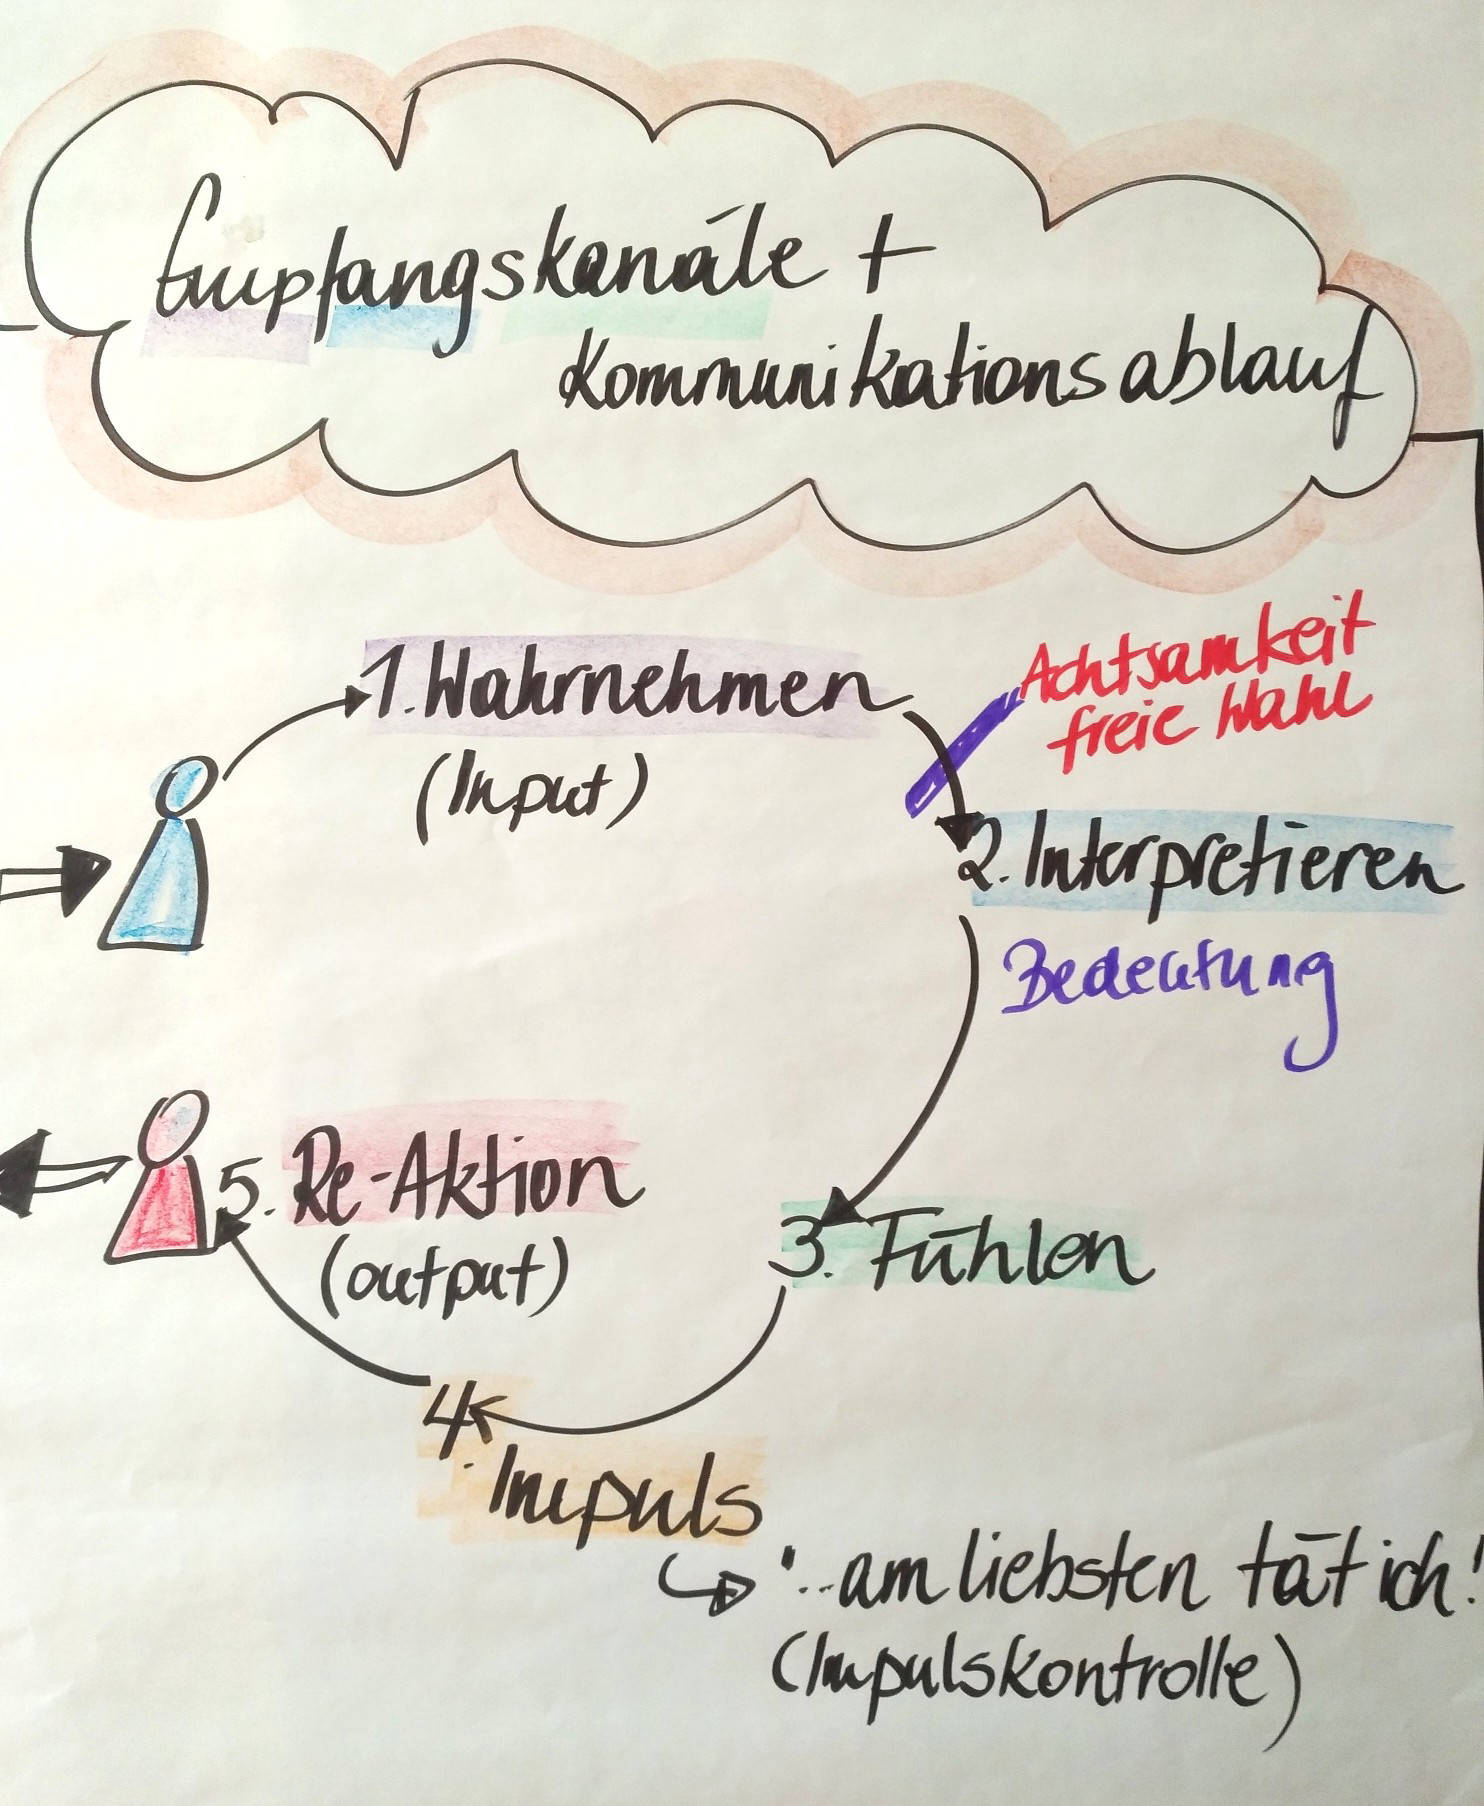 Empfangskanäle +
Kommunikationsablauf
Achtsamkeit
freie Wahl
1. Wahrnehmen
(Input)
2. Interpretieren
Bedeutung
5. Re-Aktion
(output)
3. Fühlen
4. Impuls
"...am liebsten tät ich!
(Impulskontrolle)